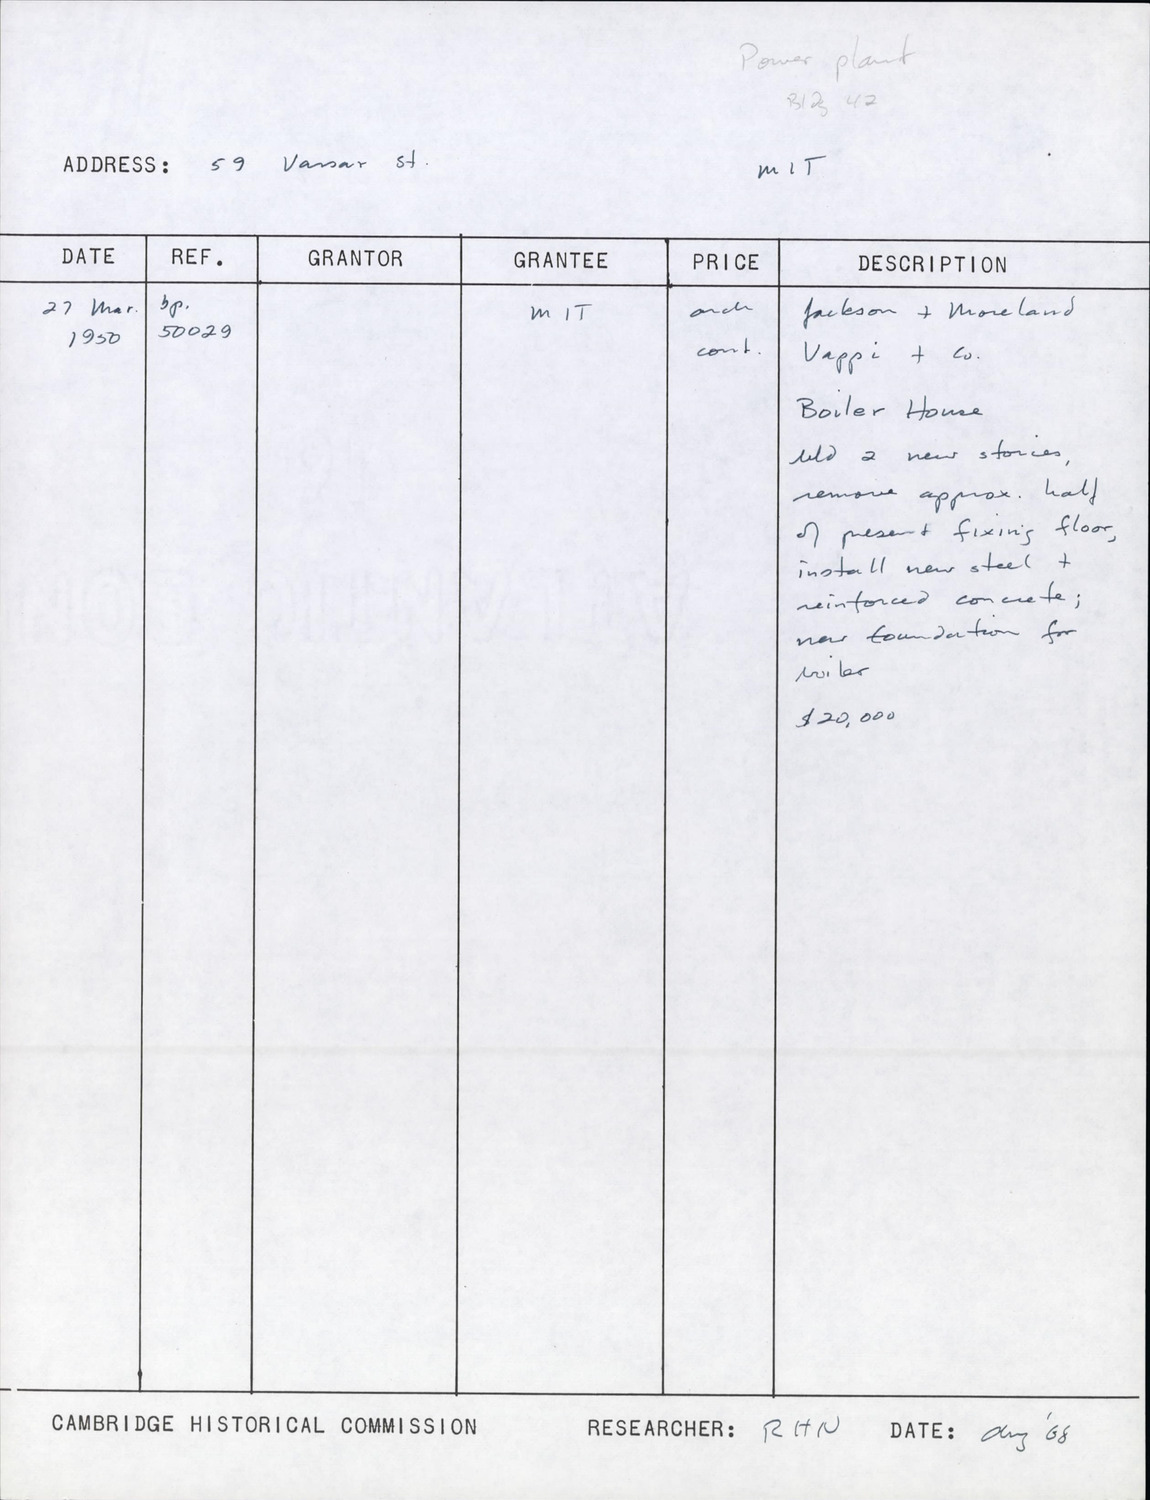 Power plant
Bldg 42
ADDRESS: 59 Vassar St.
MIT
DATE REF. GRANTOR GRANTEE PRICE DESCRIPTION
27 Mar. 1950 bp. 50029 MIT arch Jackson + Moreland
cont. Vappi + Co.
Boiler House
add 2 new stories,
remove approx. half
of present fixing floor,
install new steel +
reinforced concrete;
new foundation for
boiler
$20,000
CAMBRIDGE HISTORICAL COMMISSION RESEARCHER: RHN DATE: Aug '68